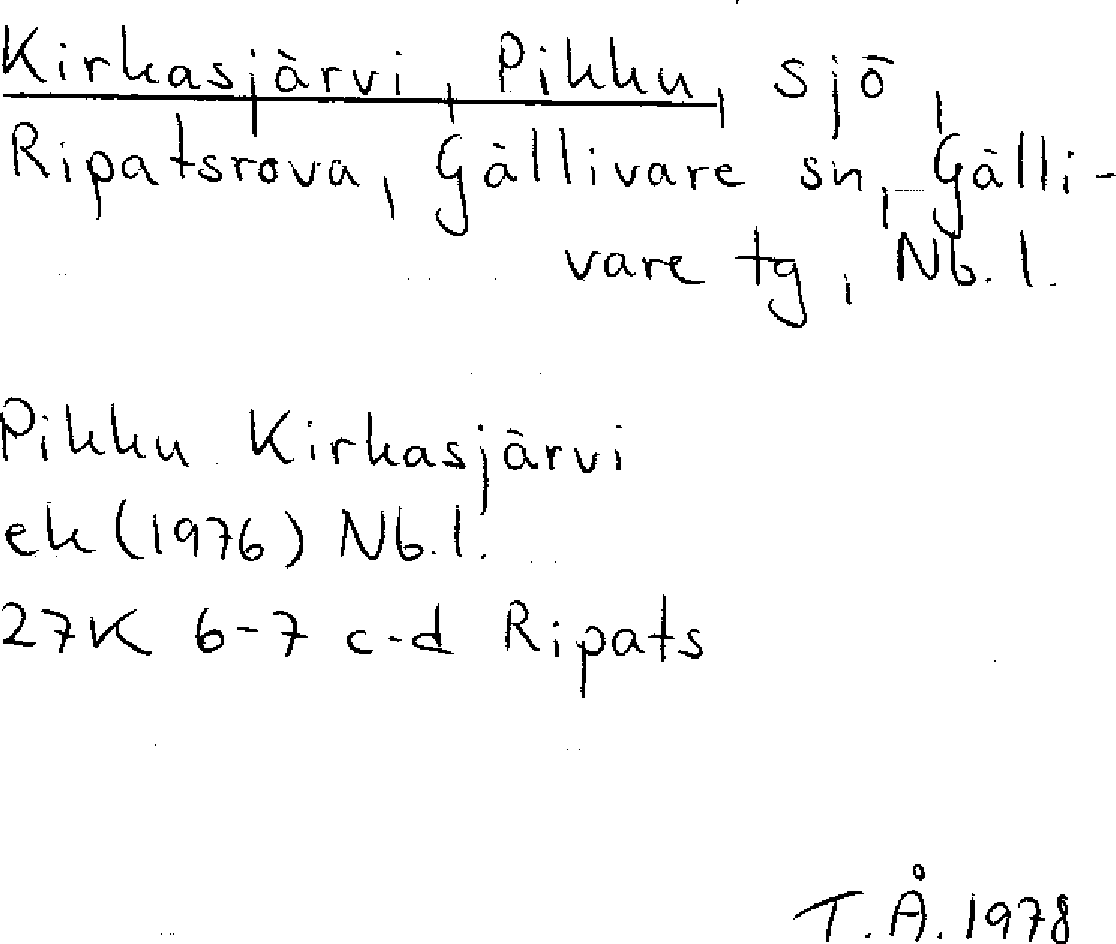 Kirkasjärvi, Pikku, sjö,
Ripatsrova, Gällivare sn, Gälli-
vare tg, Nb.l.
Pikku Kirkasjärvi
ek (1976) Nb.l.
27K 6-7 c-d Ripats
T.Å. 1978